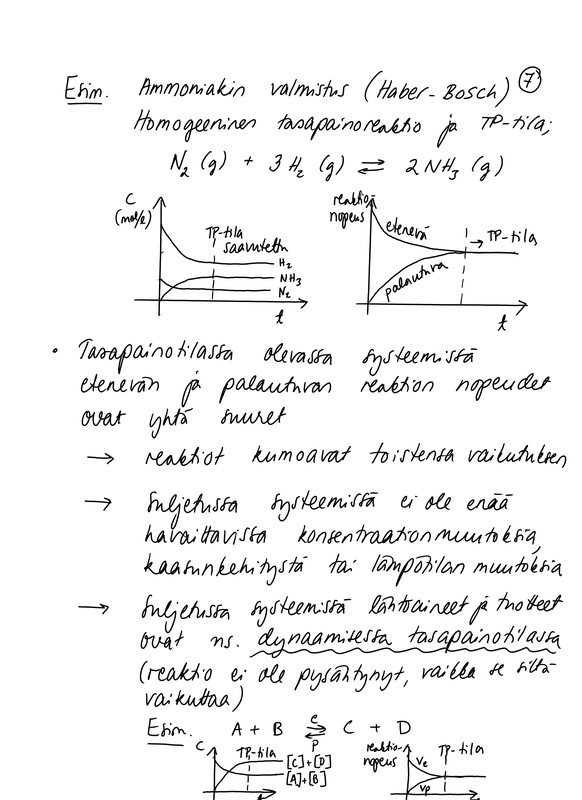 Esim. Ammoniakin valmistus (Haber-Bosch) 7
Homogeeninen tasapainoreaktio ja TP-tila;
N₂ (g) + 3 H₂ (g) ⇌ 2 NH₃ (g)
C
(mol/l)
TP-tila
saavutettu
H₂
NH₃
N₂
t
reaktio-
nopeus
etenevä
→ TP-tila
palautuva
t
• Tasapainotilassa olevassa systeemissä
etenevän ja palautuvan reaktion nopeudet
ovat yhtä suuret
→ reaktiot kumoavat toistensa vaikutuksen
→ Suljetussa systeemissä ei ole enää
havaittavissa konsentraationmuutoksia,
kaasunkehitystä tai lämpötilan muutoksia
→ Suljetussa systeemissä lähtöaineet ja tuotteet
ovat ns. dynaamisessa tasapainotilassa
(reaktio ei ole pysähtynyt, vaikka se siltä
vaikuttaa)
Esim. A + B e ⇌ p C + D
C
TP-tila
[C]+[D]
[A]+[B]
reaktio-
nopeus
TP-tila
ve
vp